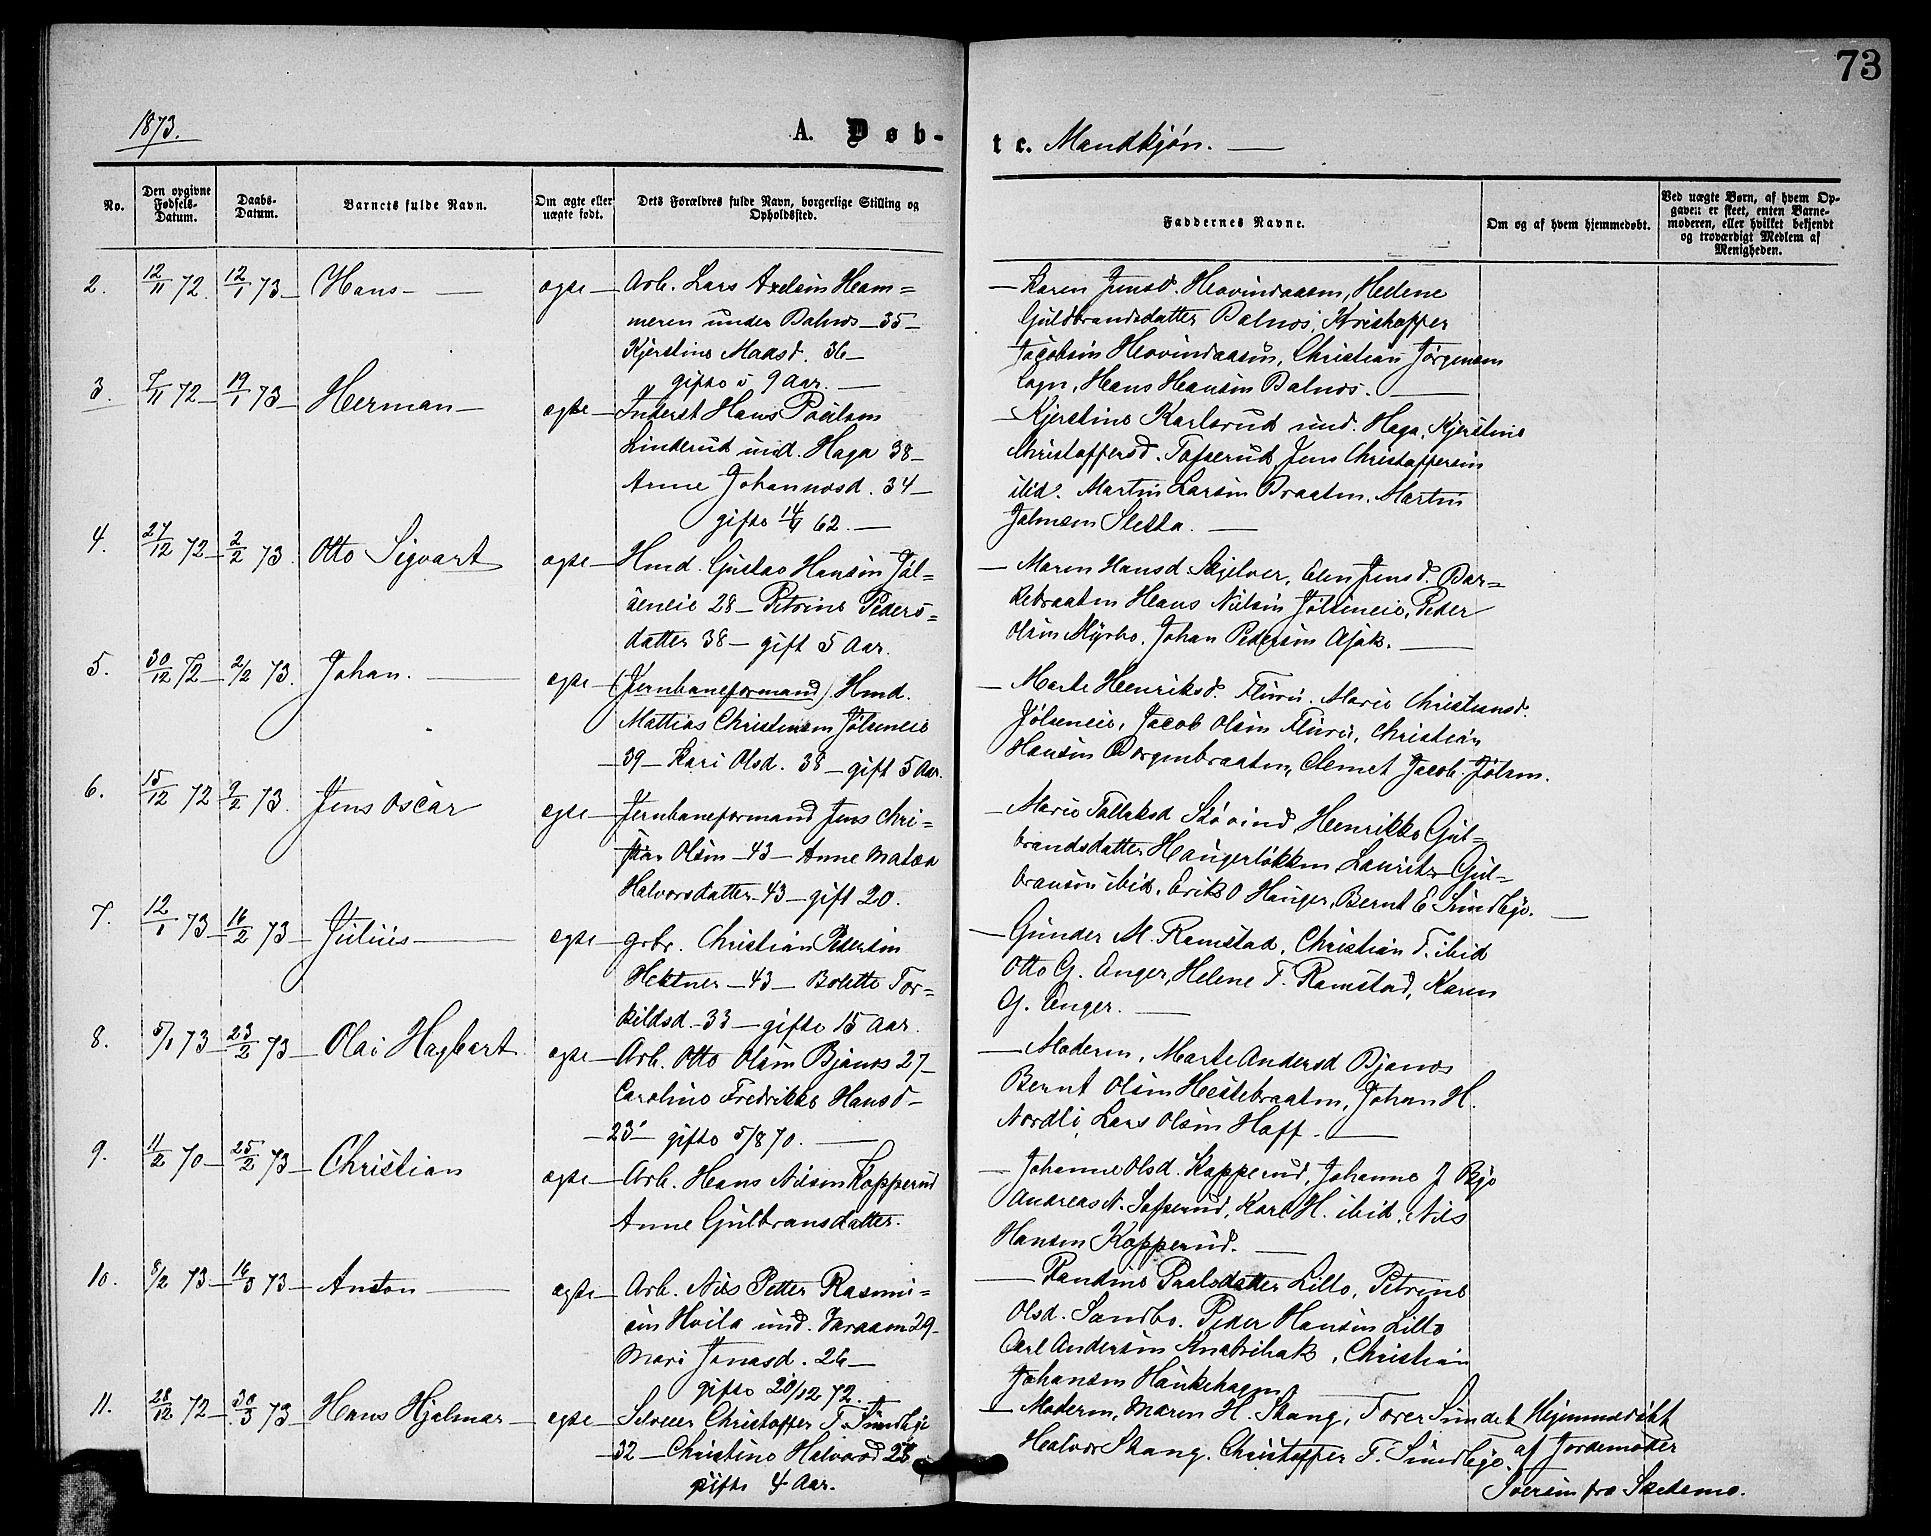 73
1873.
A. Døb-
te. Mandkjøn.
No.
Den opgivne Fødsels-Datum.
Daabs-Datum.
Barnets fulde Navn.
Om ægte eller uægte født.
Dets Forældres fulde Navn, borgerlige Stilling og Opholdssted.
Faddernes Navne.
Om og af hvem hjemmedøbt.
Ved uægte Børn, af hvem Opgaven er skeet, enten Barnemoderen, eller hvilket bekjendt og troværdigt Medlem af Menigheden.
2. 12/11 72. 12/1 73 Hans ægte Arb. Lars Axelsen Ham=
meren under Balnes 35
Kjerstine Maasd. 36
gifte i 9 Aar.
Karen Jensd. Hovindaasen, Helene
Guldbrandsdatter Balnes, Kristoffer
Jacobsen Hovindaasen, Christian Jørgensen
Hans Hansen Balnes.
3. 7/11 72 19/1 73 Herman ægte Inderst Hans Poulsen
Linderud und. Haga 38
Anne Johannesd. 34
gifte 14/4 62.
Kjerstine Karlsrud und. Haga, Kjerstine
Christoffersd. Tofserud, Jens Christoffersen
ibid. Martin Larsen Braaten, Martin
Johnsen Sletta.
4. 27/12 72 2/2 73. Otto Sigvart ægte Hmd. Gustav Hansen Jøl=
seneie 28 Petrine Peders=
datter 38 gift 5 Aar.
Maren Hansd. Skjelver, Elen Jensd. Bar=
kebraaten Hans Nielsen Jølseneie, Peder
Olsen Myrbo, Johan Pedersen Asak.
5. 30/12 72 2/2 73. Johan. ægte (Jernbaneformand) Hmd.
Mattias Christensen Jølseneie
39 Kari Olsd. 38 gift 5 Aar.
Marte Henriksd. Fluru. Marie Christiansd.
Jølseneie, Jacob Olsen Fluru, Christian
Hansen Borgenbraaten, Clemet Jacob. Jølsen.
6. 15/12 72 9/2 73. Jens Oscar ægte Jernbaneformand Jens Chri=
stian Olsen 43 Anne Matea
Halvorsdatter 43 gift 20.
Marie Tollaksd Skøvind Henrikke Gul=
brandsdatter Haugerløkken Lauritz Gul=
bransen ibid. Erik O Hauger, Bernt E Sundbye.
7. 12/1 73 16/2 73 Julius ægte Grbr. Christian Pedersen
Hektner 43 Bolette Tor=
kildsd. 33 gifte 15 Aar.
Gunder M. Ramstad, Christian T. ibid
Otto G. Enger, Helene T. Ramstad, Karen
G. Enger.
8. 5/1 73 23/2 73 Olai Hagbart ægte Arb. Otto Olsen Bjanes 27
Caroline Fredrikke Hansd
23 gifte 5/8 70.
Moderen, Marte Andersd Bjanes
Bernt Olsen Hestebraaten, Johan H.
Nordli, Lars Olsen Hoff.
9. 11/2 70 25/2 73 Christian ægte Arb. Hans Nilsen Kopperud
Anne Gulbransdatter.
Johanne Olsd. Kopperud, Johanne J Bye
Andreas N. Tofserud, Karl H. ibid, Nils
Hansen Kopperud.
10. 8/2 73 16/3 73 Anton ægte Arb. Nils Petter Rasmu=
sen Hvila und. Varaaen 29
Mari Jonasd. 26
gifte 20/12 72
Randine Paalsdatter Lillo, Petrine
Olsd. Sandbo. Peder Hansen Lillo
Carl Andersen, Christian
Johansen Haukehagen
11. 28/12 72 30/3 73 Hans Hjalmar ægte Selveier Christoffer T. Sundbye
32 Christine Halvorsd 28
gifte 4 Aar.
Moderen, Maren H. Skang, Torer Sundet
Halvor Skang. Christoffer T. Sundbye.
Hjemmedøbt
af Jordemoder
Iversen fra Skedsmo.